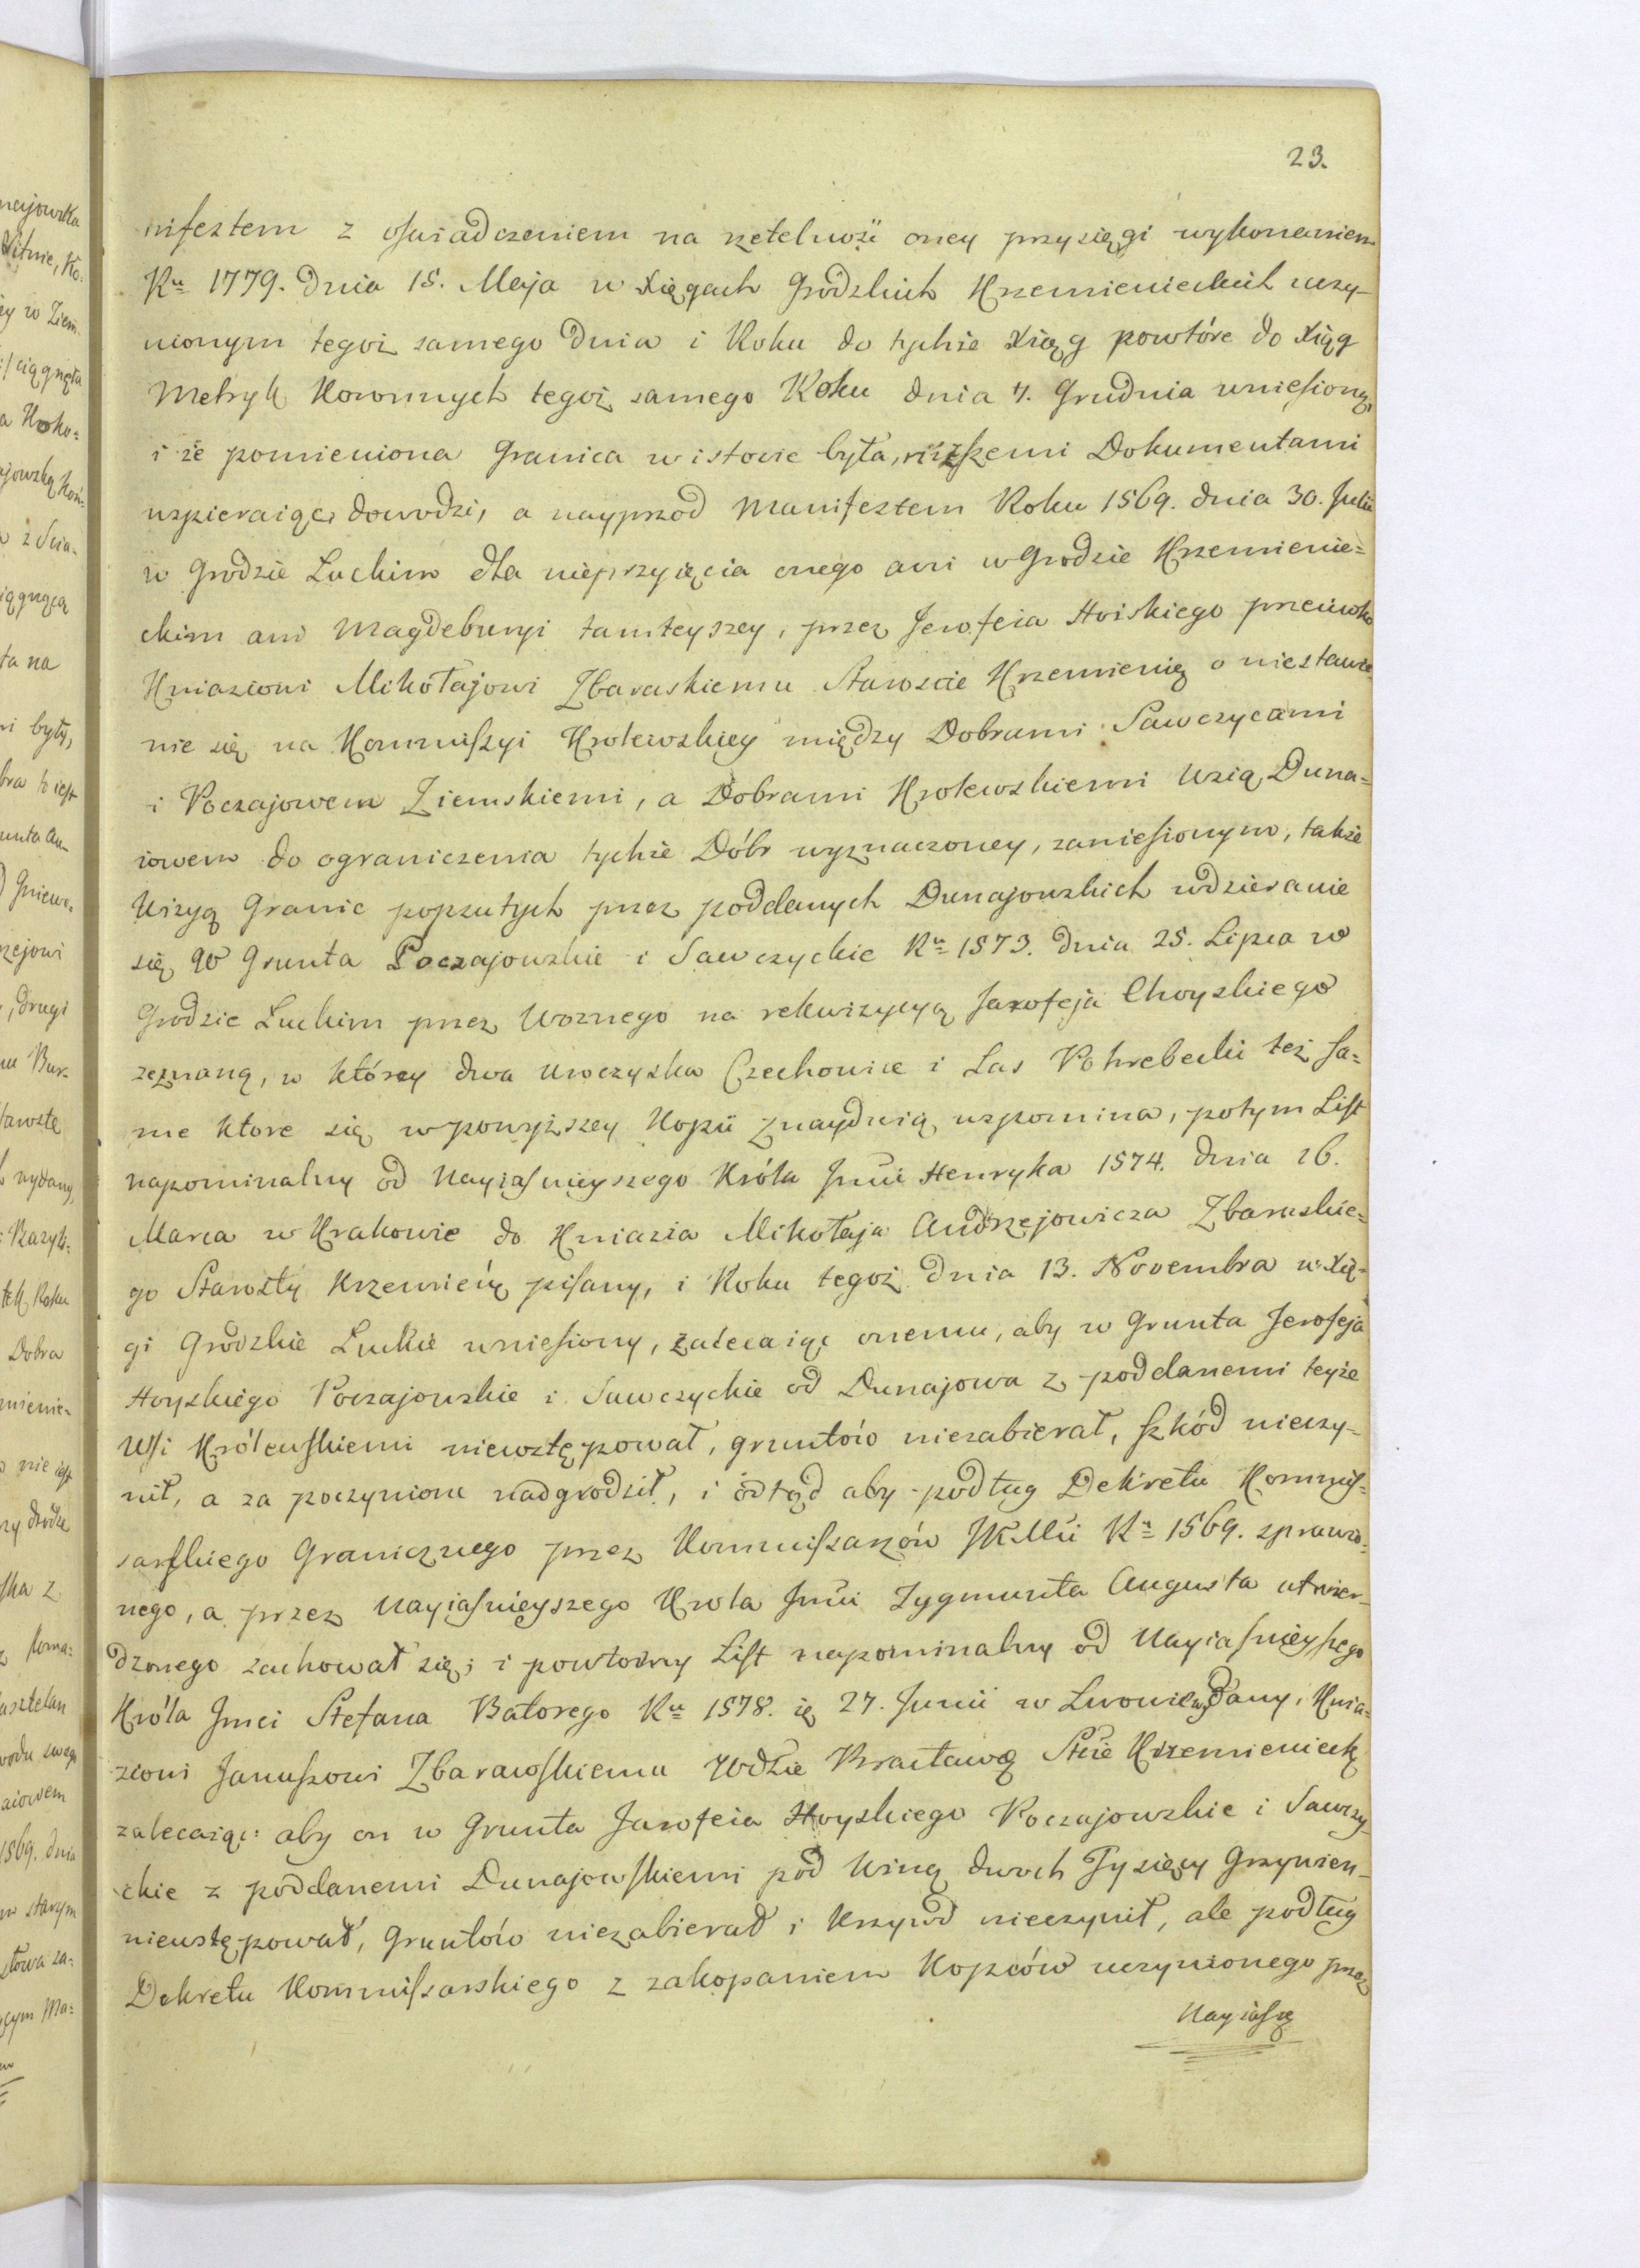 23.
nifestem z oświadczeniem na rzetelność oney przysięgi wykonaniem
Ru 1779. dnia 15. Maja w Xięgach Grodzkich Krzemienieckich uczy-
nionym tegoż samego dnia i Roku do tychże Xiąg powtóre do Xiąg
Metryk Koronnych tegoż samego Roku dnia 7. Grudnia wniesioną,
i że pomieniona Granica w istocie była, niższemi Dokumentami
wspieraiąc dowodzi, a nayprzod Manifestem Roku 1569. dnia 30. Julii
w Grodzie Luckim dla nieprzyięcia onego ani w Grodzie Krzemienie=
ckim ani Magdeburyi tamteyszey, przez Jerofeia Hoiskiego przeciwko
Kniaziowi Mikołajowi Zbaraskiemu Staroscie Krzemienię o niestawie
nie się na Kommissyi Krolewskiey między Dobrami Sawczycami
i Poczajowem Ziemskiemi, a Dobrami Krolewskiemi Wsią Duna=
iowem do ograniczenia tychże Dóbr wyznaczoney, zaniesionym, także
Wizyą Granic popsutych przez poddanych Dunajowskich wdzieranie
się w Grunta Poczajowskie i Sawczyckie Ru 1573. dnia 25. Lipca w
Grodzie Luckim przez Woznego na rekwizycyą Jarofeja Choyskiego
zeznaną, w którey dwa uroczyska Czechowice i Las Pohrebecki też sa=
me ktore się w powyższey Kopii znayduią, wspomina, potym List
napominalny od Nayiaśnieyszego Króla Jmći Henryka 1574. dnia 26.
Marca w Krakowie do Kniazia Mikołaja Andrzejowicza Zbaraskie=
go Starosty Krzemienię pisany, i Roku tegoż dnia 13. Novembra w Xię=
gi Grodzkie Luckie wniesiony, zalecaiąc onemu, aby w Grunta Jerofeja
Hoyskiego Poczajowskie i Sawczyckie od Dunajowa z poddanemi teyże
Wsi Królewskiemi niewstępował, gruntów niezabierał, szkód nieczy=
nił, a za poczynione nadgrodził, i odtąd aby podług Dekretu Kommis=
sarskiego Granicznego przez Kommissarzów JKMći Ru 1569. sprawio=
nego, a przez Nayiaśnieyszego Krola Jmći Zygmunta Augusta utwier-
dzonego zachował się; i powtorny List napominalny od Nayiaśnieyszego
Króla Jmci Stefana Batorego Ru 1578. ię 27. Junii w Lwowie wydany, Knia=
ziowi Januszowi Zbarawskiemu Wdzie Bracławę Sćie Krzemienieckę
zalecaiąc: aby on w Grunta Jarofeia Hoyskiego Poczajowskie i Sawczy-
ckie z poddanemi Dunajowskiemi pod Winą dwoch Tysięcy Grzywien
niewstępował, Gruntów niezabierał i Krzywd nieczynił, ale podług
Dekretu Kommissarskiego z zakopaniem Kopców uczynionego przez
Nayiaśnę